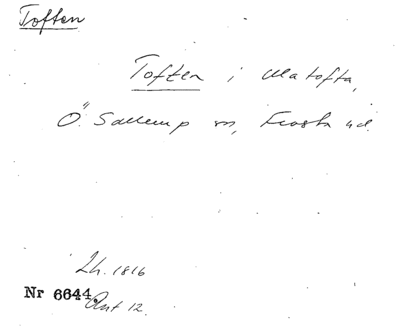 Toften
Toften i Matofta,
Ö. Sallerup sn, Frosta hd.
Lh. 1816
Nr 6644. Ant 12.